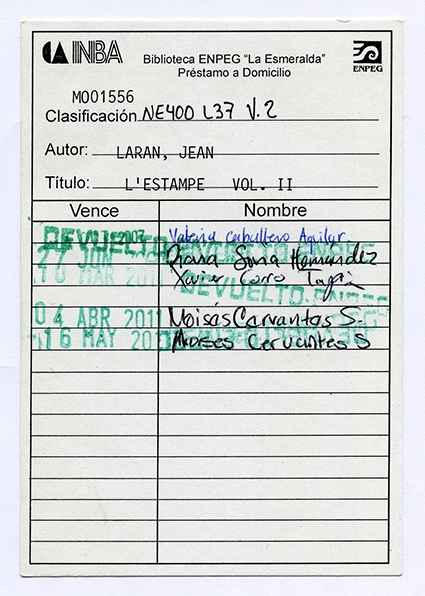 INBA
Biblioteca ENPEG "La Esmeralda"
Préstamo a Domicilio
ENPEG
M001556
Clasificación NE400 L37 V.2
Autor: LARAN, JEAN
Título: L'ESTAMPE VOL. II
Vence Nombre
DEVUELTO Valeria Caballero Aguilar
27 JUN Diana Hernández
10 MAR 2011 Xavier
DEVUELTO-ENPEG
04 ABR 2011 Moisés Cervantes S.
16 MAY Moises Cervantes S